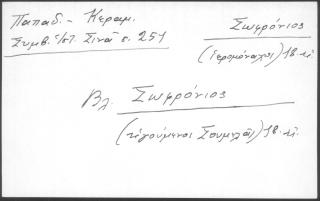 Παπαδ.- Κεραμ.
Συμβ. ἱστ. Σινᾶ σ. 251
Σωφρόνιος
(ἱερομόναχος) 18. αἰ.
Βλ. Σωφρόνιος
(ἡγούμενος Σουμελᾶ) 18. αἰ.